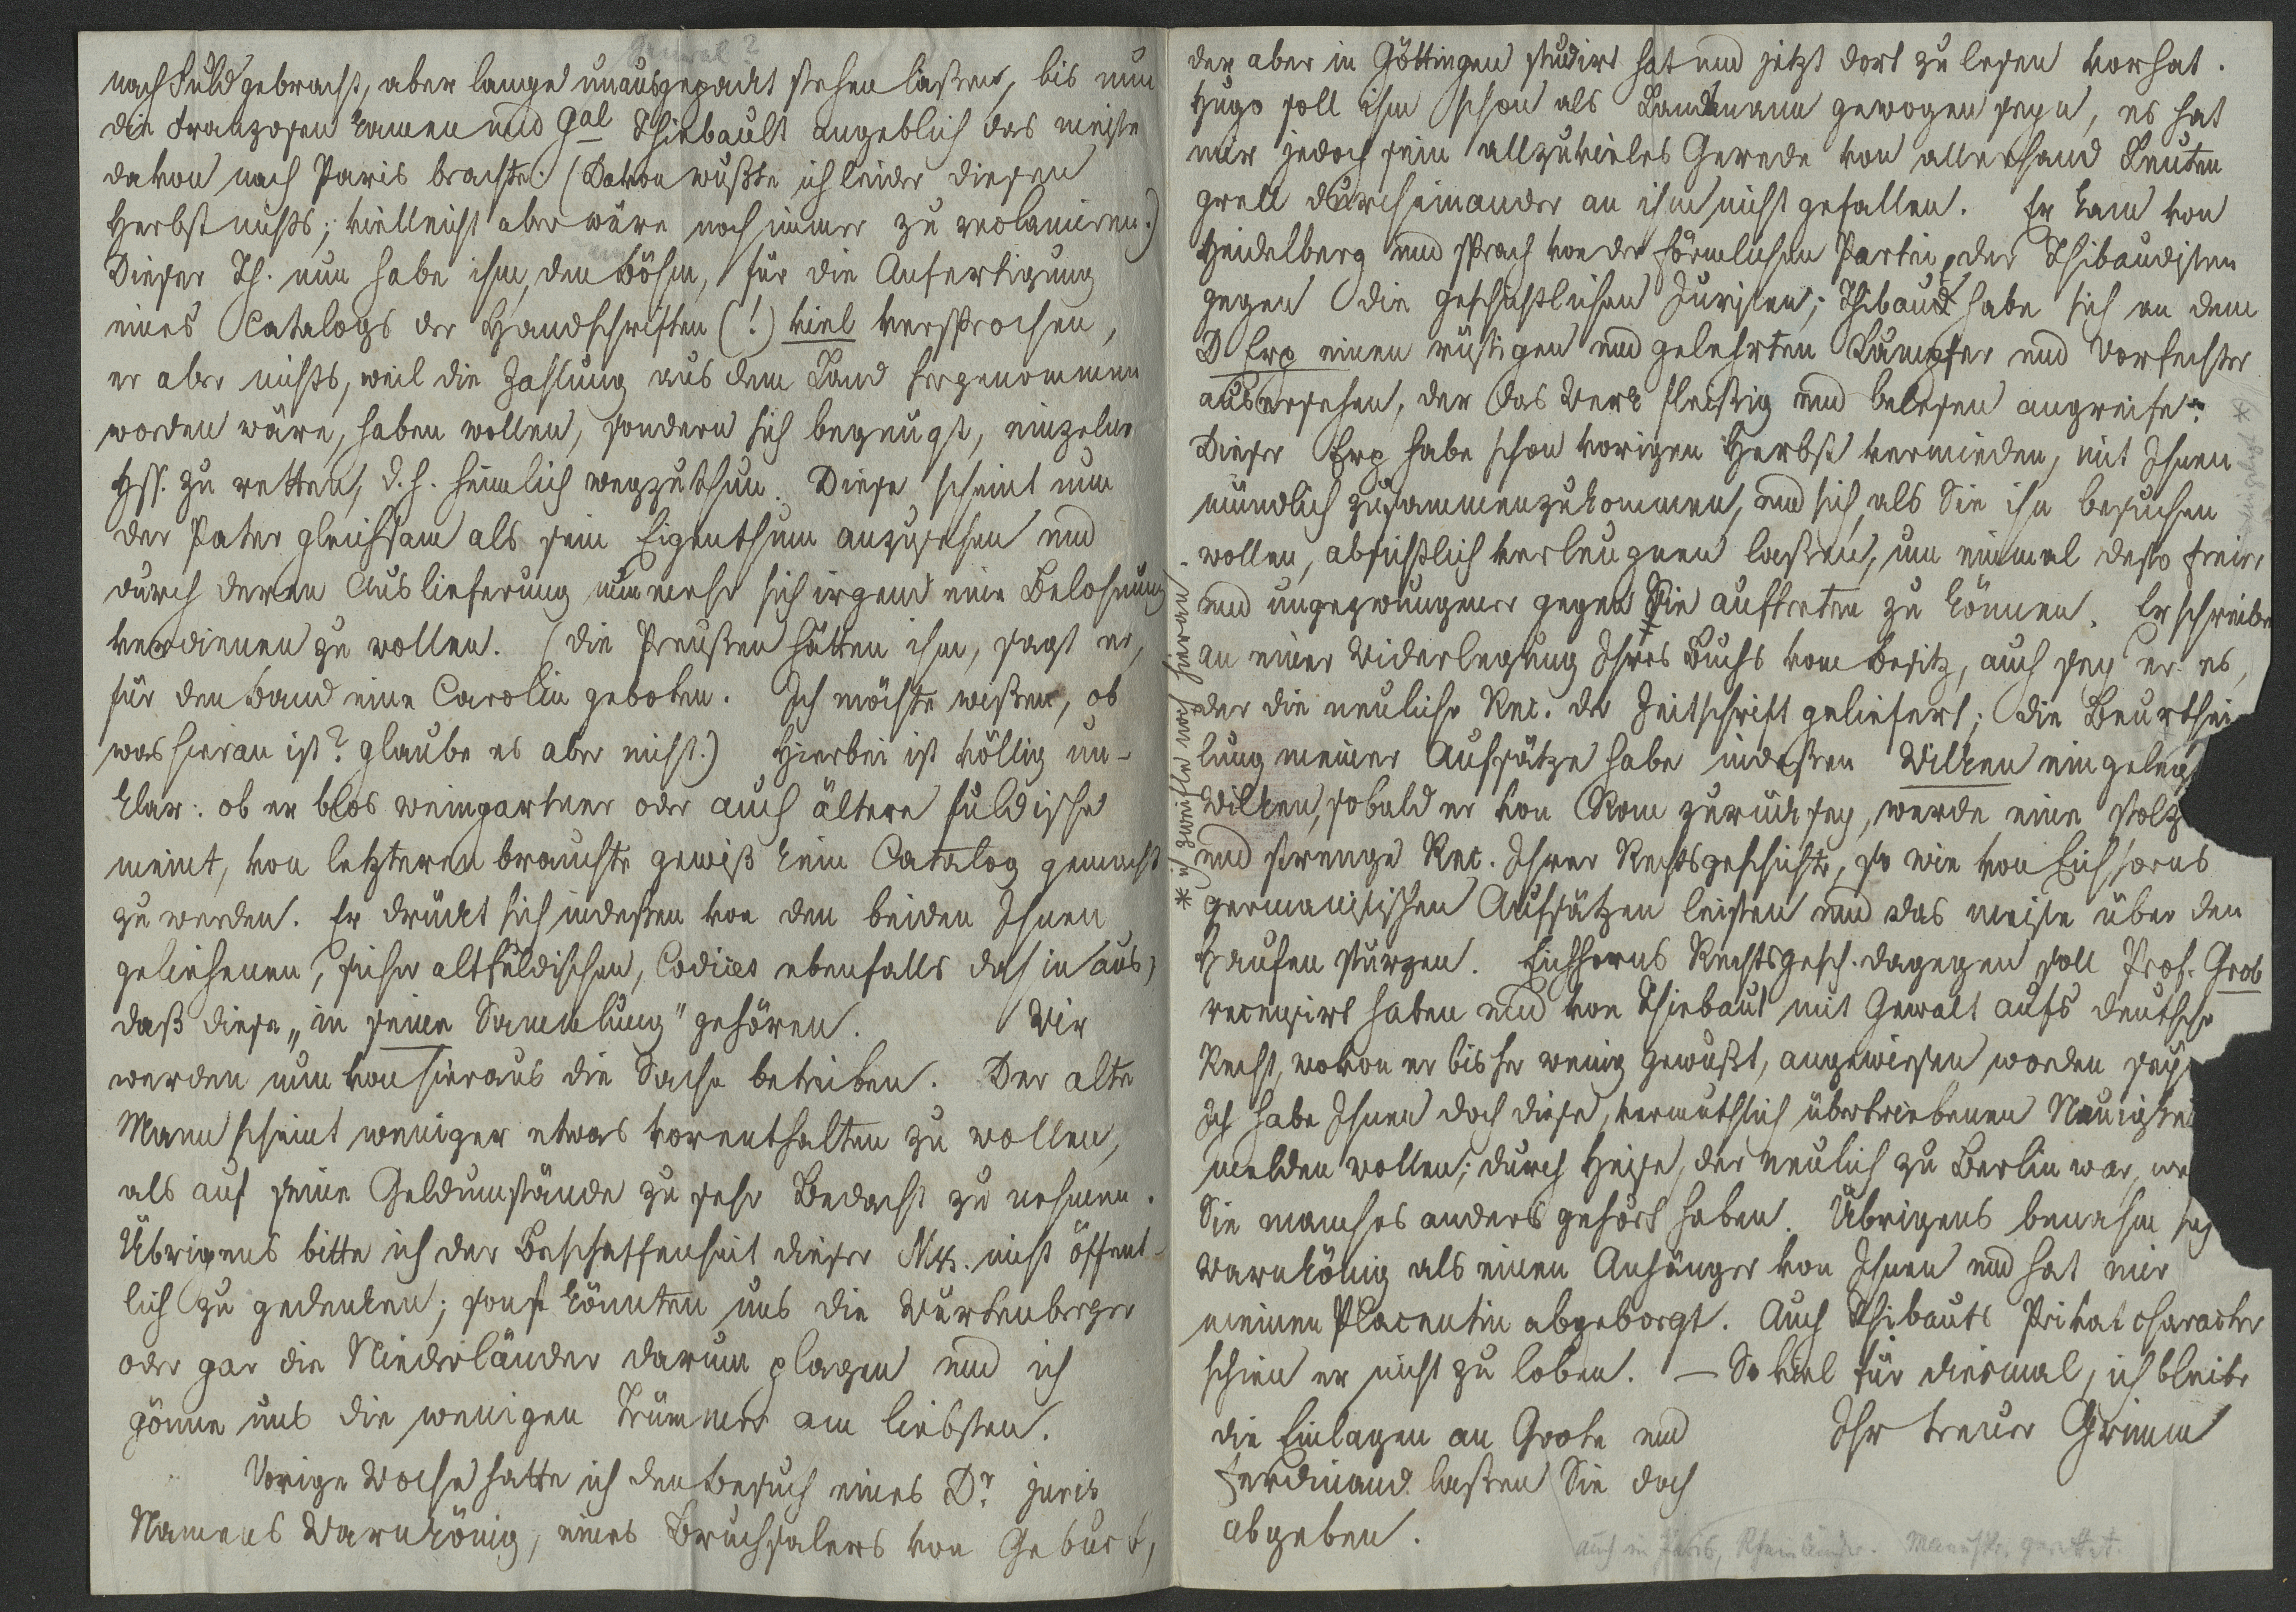 General?
nach Fuld gebracht, aber lange unausgepackt stehen laßen, bis nun
die Franzosen kamen und Gal Thiebault angeblich das meiste
davon nach Paris brachte. (Davon wußte ich leider diesen
Herbst nichts; vielleicht aber wäre noch immer zu reclamiren.)
Dieser Th. nun habe ihm, dem Böhm, für die Anfertigung
eines Catalogs der Handschriften (!) viel versprochen,
er aber nichts, weil die Zahlung aus dem Land hergenommen
worden wäre, haben wollen, sondern sich begnügt, einzelne
Hss. zu retten, d. h. heimlich wegzuthun. Diese scheint nun
der Pater gleichsam als sein Eigenthum anzusehen und
durch deren Auslieferung nunmehr sich irgend eine Belohnung
verdienen zu wollen. (Die Preußen hätten ihm, sagt er,
für den Band eine Carolin geboten. Ich möchte wißen, ob
was hieran ist? glaube es aber nicht.) Hierbei ist völlig un-
klar: ob er blos weingartner oder auch ältere fuldische
meint, von letzteren brauchte gewiß kein Catalog gemacht
zu werden. Er drückt sich indeßen von den beiden Ihnen
geliehenen, sicher altfuldischen, Codices ebenfalls dahin aus,
daß diese „in seine Sammlung" gehören. Wir
werden nun von hieraus die Sache betreiben. Der alte
Mann scheint weniger etwas vorenthalten zu wollen,
als auf seine Geldumstände zu sehr Bedacht zu nehmen.
Übrigens bitte ich der Beschaffenheit dieser Mss. nicht öffent-
lich zu gedenken; sonst könnten uns die Wurtenberger
oder gar die Niederländer darum plagen und ich
gönne uns die wenigen Trümmer am liebsten.
Vorige Woche hatte ich den Besuch eines Dr. juris
Namens Warnkönig, eines Bruchsalers von Geburt,
der aber in Göttingen studirt hat und jetzt dort zu lesen vorhat.
Hugo soll ihm schon als Landsmann gewogen seyn, es hat
mir jedoch sein allzuvieles Gerede von allerhand Leuten
grell durcheinander an ihm nicht gefallen. Er kam von
Heidelberg und sprach von der förmlichen Partei der Thibaudisten
gegen die geschichtlichen Juristen; Thibaut habe sich an dem
D Erp einen rüstigen und gelehrten Kämpfer und Vorfechter
ausersehen, der das Werk fleißig und belesen angreife.
Dieser Erp habe schon vorigen Herbst vermieden, mit Ihnen
mündlich zusammenzukommen, und sich, als Sie ihn besuchen
wollen, absichtlich verleugnen laßen, um einmal desto freier
und ungezwungener gegen Sie auftreten zu können. Er schreibe
an einer Widerlegung Ihres Buchs vom Besitz, auch sey er es,
der die neuliche Rec. der Zeitschrift geliefert; die Beurthei-
lung meiner Aufsätze habe indeßen Wilken eingelegt
Wilken, sobald er von Rom zurück sey, werde eine stolze
und strenge Rec. Ihrer Rechtsgeschichte, so wie von Eichhorns
germanistischen Aufsätzen leisten und das meiste über den
Haufen sturzen. Eichhorns Rechtsgesch. dagegen soll Prof. Grob
recensirt haben und von Thiebaut mit Gewalt aufs deutsche
Recht, wovon er bisher wenig gewußt, angewiesen worden sey
Ich habe Ihnen doch diese, vermuthlich übertriebenen Neuigkei
melden wollen; durch Heise, der neulich zu Berlin war, we
Sie manches anders gehört haben. Übrigens benahm sich
Warnkönig als einen Anhänger von Ihnen und hat mir
meinen Placentin abgeborgt. Auch Thibauts Privatcharacter
schien er nicht zu loben. — So viel für diesmal, ich bleibe
Ihr treuer Grimm
die Einlagen an Grote und
Ferdinand laßen Sie doch
abgeben.
* ich zweifle noch hieran.
auch in Paris, Manuskr. gerettet.